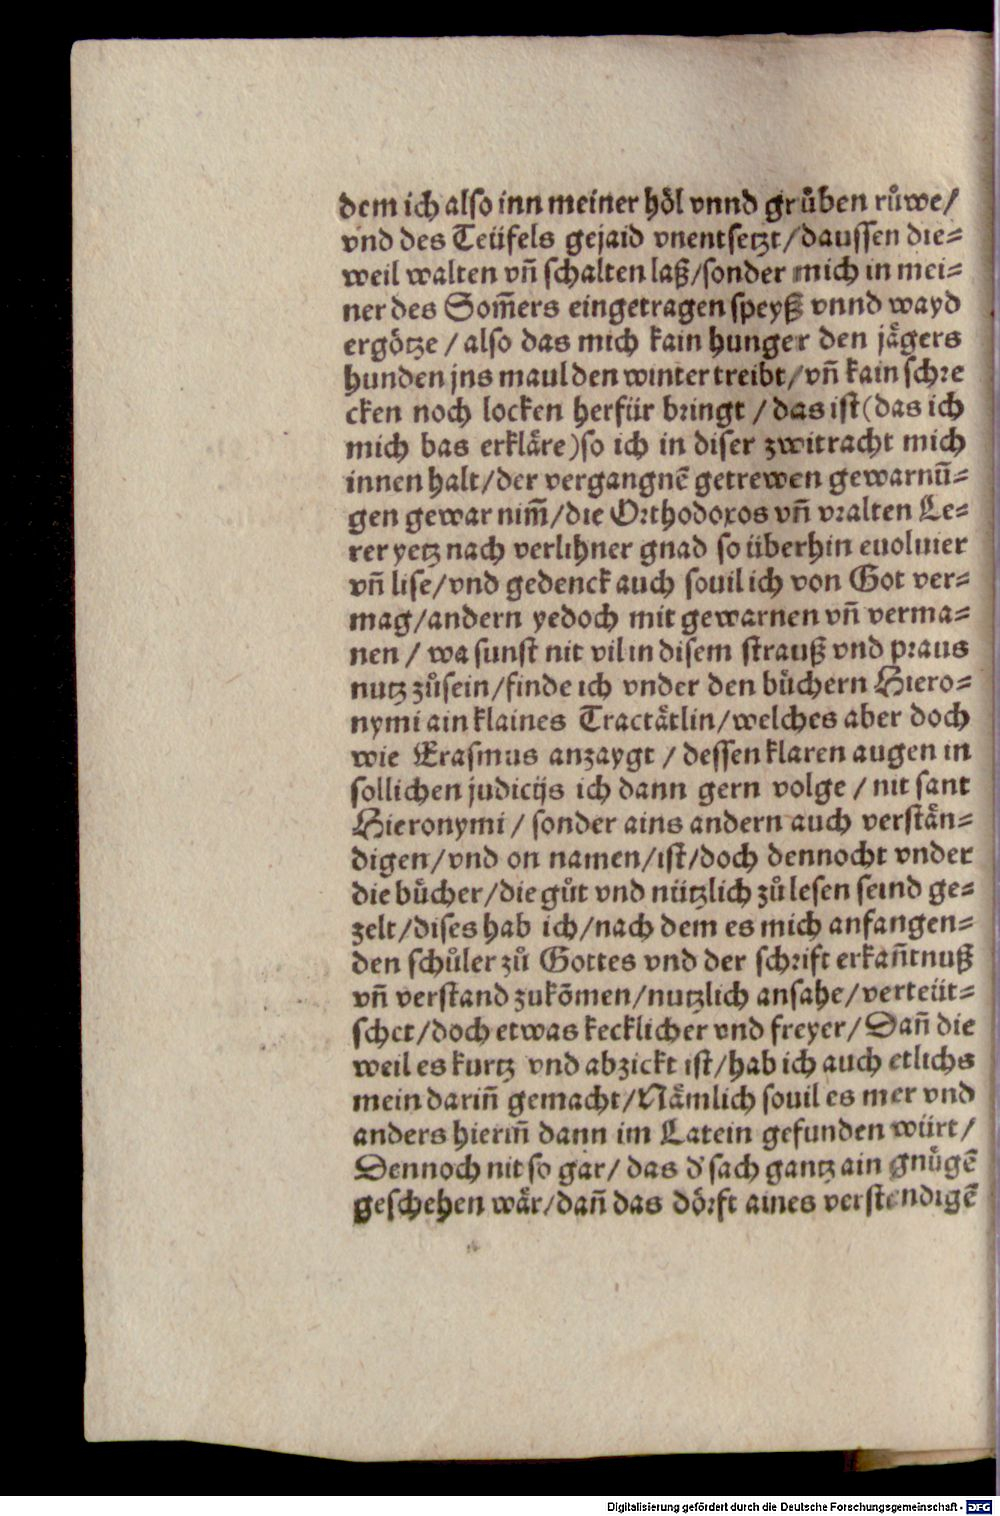 dem ich also inn meiner hoͤl vnnd gruͤben ruͦwe/
vnd des Teüfels gejaid vnentsetzt/daussen die⸗
weil walten vñ schalten laß/sonder mich in mei⸗
ner des Som̃ers eingetragen speyß vnnd wayd
ergoͤtze / also das mich kain hunger den jaͤgers
hunden jns maul den winter treibt/vñ kain schre
cken noch locken herfür bringt / das ist(das ich
mich bas erklaͤre)so ich in diser zwitracht mich
innen halt/der vergangnẽ getrewen gewarnũ⸗
gen gewar nim̃/die Orthodoxos vñ vralten Le⸗
rer yetz nach verlihner gnad so überhin euoluier
vñ lise/vnd gedenck auch souil ich von Got ver⸗
mag/andern yedoch mit gewarnen vñ verma⸗
nen / wa sunst nit vil in disem strauß vnd praus
nutz zuͦsein/finde ich vnder den buͤchern Hiero⸗
nymi ain klaines Tractaͤtlin/welches aber doch
wie Erasmus anzaygt / dessen klaren augen in
sollichen judicijs ich dann gern volge / nit sant
Hieronymi / sonder ains andern auch verstaͤn⸗
digen/vnd on namen/ist/doch dennocht vnder
die buͤcher/die guͦt vnd nützlich zuͦ lesen seind ge⸗
zelt/dises hab ich/nach dem es mich anfangen⸗
den schuͦler zuͦ Gottes vnd der schrift erkañtnuß
vñ verstand zukõmen/nutzlich ansahe/verteüt⸗
schet/doch etwas kecklicher vnd freyer/Dañ die
weil es kurtz vnd abzickt ist/hab ich auch etlichs
mein dariñ gemacht/Naͤmlich souil es mer vnd
anders hieriñ dann im Latein gefunden würt/
Dennoch nit so gar/ das d' sach gantz ain gnuͤgẽ
geschehen waͤr/dañ das doͤrft aines verstendigẽ
Digitalisierung gefördert durch die Deutsche Forschungsgemeinschaft - DFG